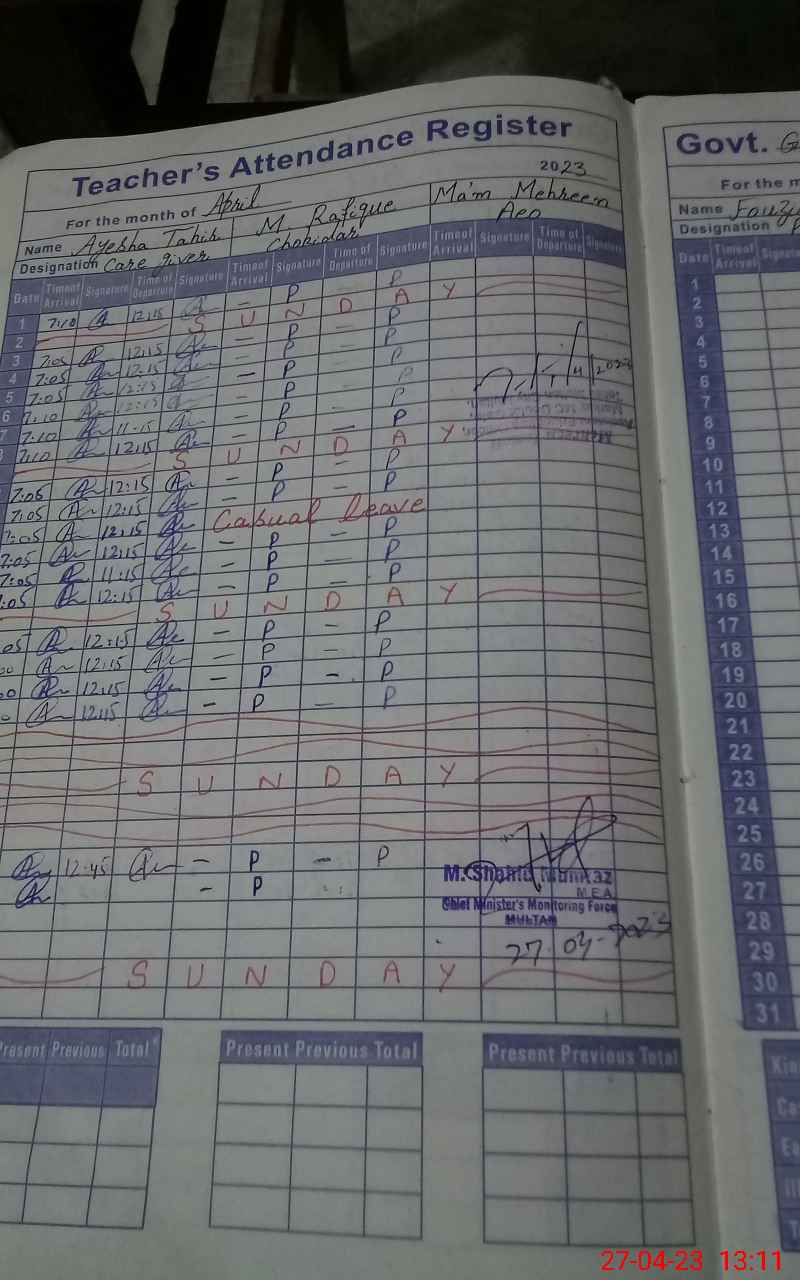 Teacher's Attendance Register
For the month of April 2023
Name Ayesha Tahir M. Rafique Ma'm Mehreen
Designation Care giver Chokidar Aeo
Date Time of Arrival Signature Time of Departure Signature Time of Arrival Signature Time of Departure Signature Time of Arrival Signature Time of Departure Signature
1 7:10 12:15 - P - P
2 S U N D A Y
3 7:05 12:15 - P - P
4 7:05 12:15 - P - P
5 7:05 12:15 - P - P
6 7:10 12:15 - P - P
7 7:10 11:15 - P - P
7:10 12:15 - P - P
S U N D A Y
7:05 12:15 - P - P
7:05 12:15 - P - P
7:05 12:15 Casual Leave
7:05 12:15 - P - P
7:05 11:15 - P - P
7:05 12:15 - P - P
S U N D A Y
05 12:15 - P - P
12:15 - P - P
12:15 - P - P
12:15 - P - P
S U N D A Y
12:45 - P - P
- P
M. Shahid Mumtaz
M.E.A
Chief Minister's Monitoring Force
MULTAN
27.03-2023
S U N D A Y
Present Previous Total
Present Previous Total
Present Previous Total
Govt. G
For the m
Name Fouzi
Designation
Date Time of Arrival Signatu
1
2
3
4
5
6
7
8
9
10
11
12
13
14
15
16
17
18
19
20
21
22
23
24
25
26
27
28
29
30
31
Kin
Ca
Ea
27-04-23 13:11